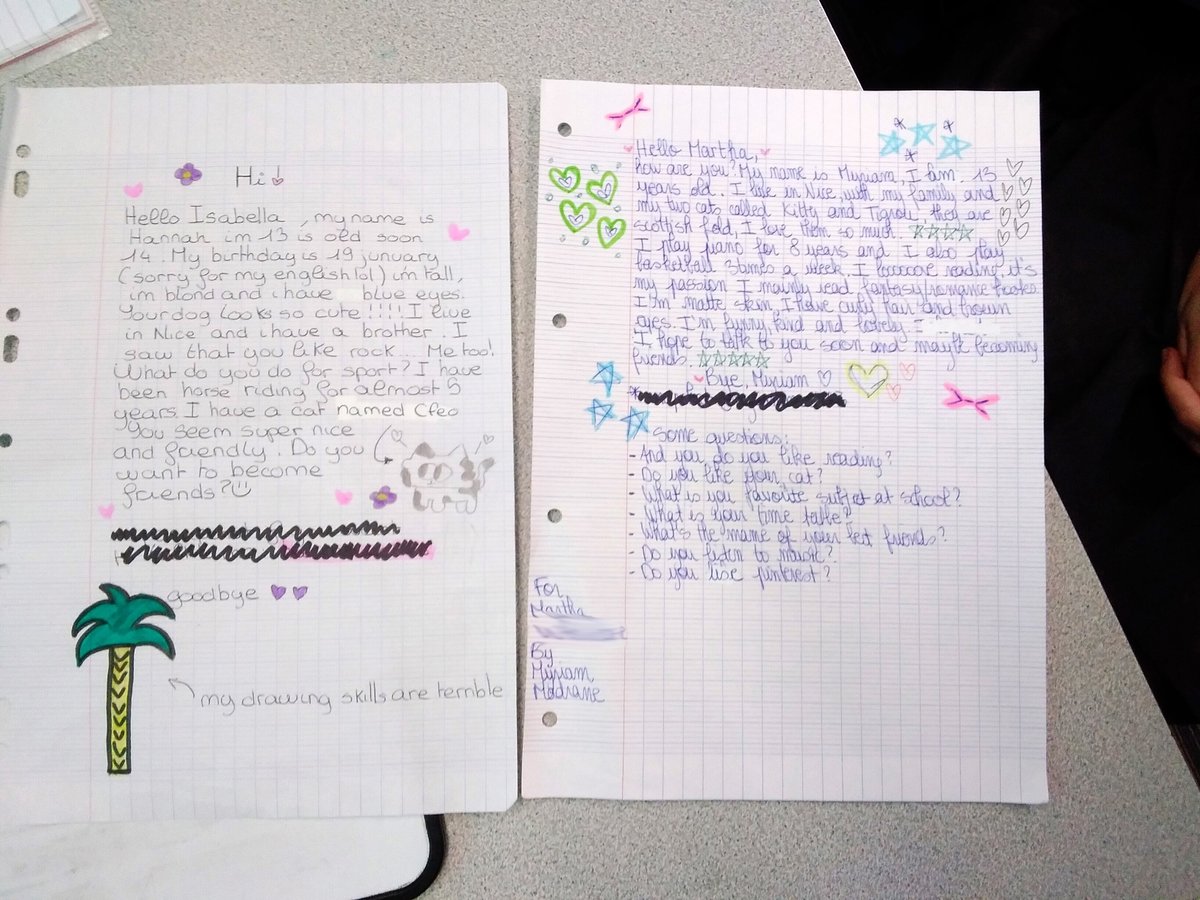 Hi!
Hello Isabella, my name is
Hannah im 13 is old soon
14. My birthday is 19 junuary
(sorry for my english lol) i'm tall,
im blond and i have blue eyes.
Your dog looks so cute !!!! I live
in Nice and i have a brother. I
saw that you like rock... Me too!
What do you do for sport? I have
been horse riding for almost 5
years I have a cat named Cleo
You seem super nice
and friendly. Do you
want to become
friends?
goodbye
my drawing skills are terrible
Hello Martha,
how are you? My name is Myriam, I am. 13
years old. I live in Nice, with my family and
my two cats called Kitty and Tigrou, they are
scottish fold, I love them so much
I play piano for 8 years and I also play
basketball 3 times a week. I loooove reading, it's
my passion I mainly read fantasy/romance books
I'm matte skin, I have curly hair and brown
eyes. I'm funny, kind and lovely. I
I hope to talk to you soon and maybe becoming
friends.
Bye, Myriam
Some questions:
- And you do you like reading?
- Do you like your cat?
- What is you favorite subject at school?
- What is your time table?
- What's the name of your best friends?
- Do you listen to music?
- Do you use pinterest?
For
Martha
By
Myriam
Madrane